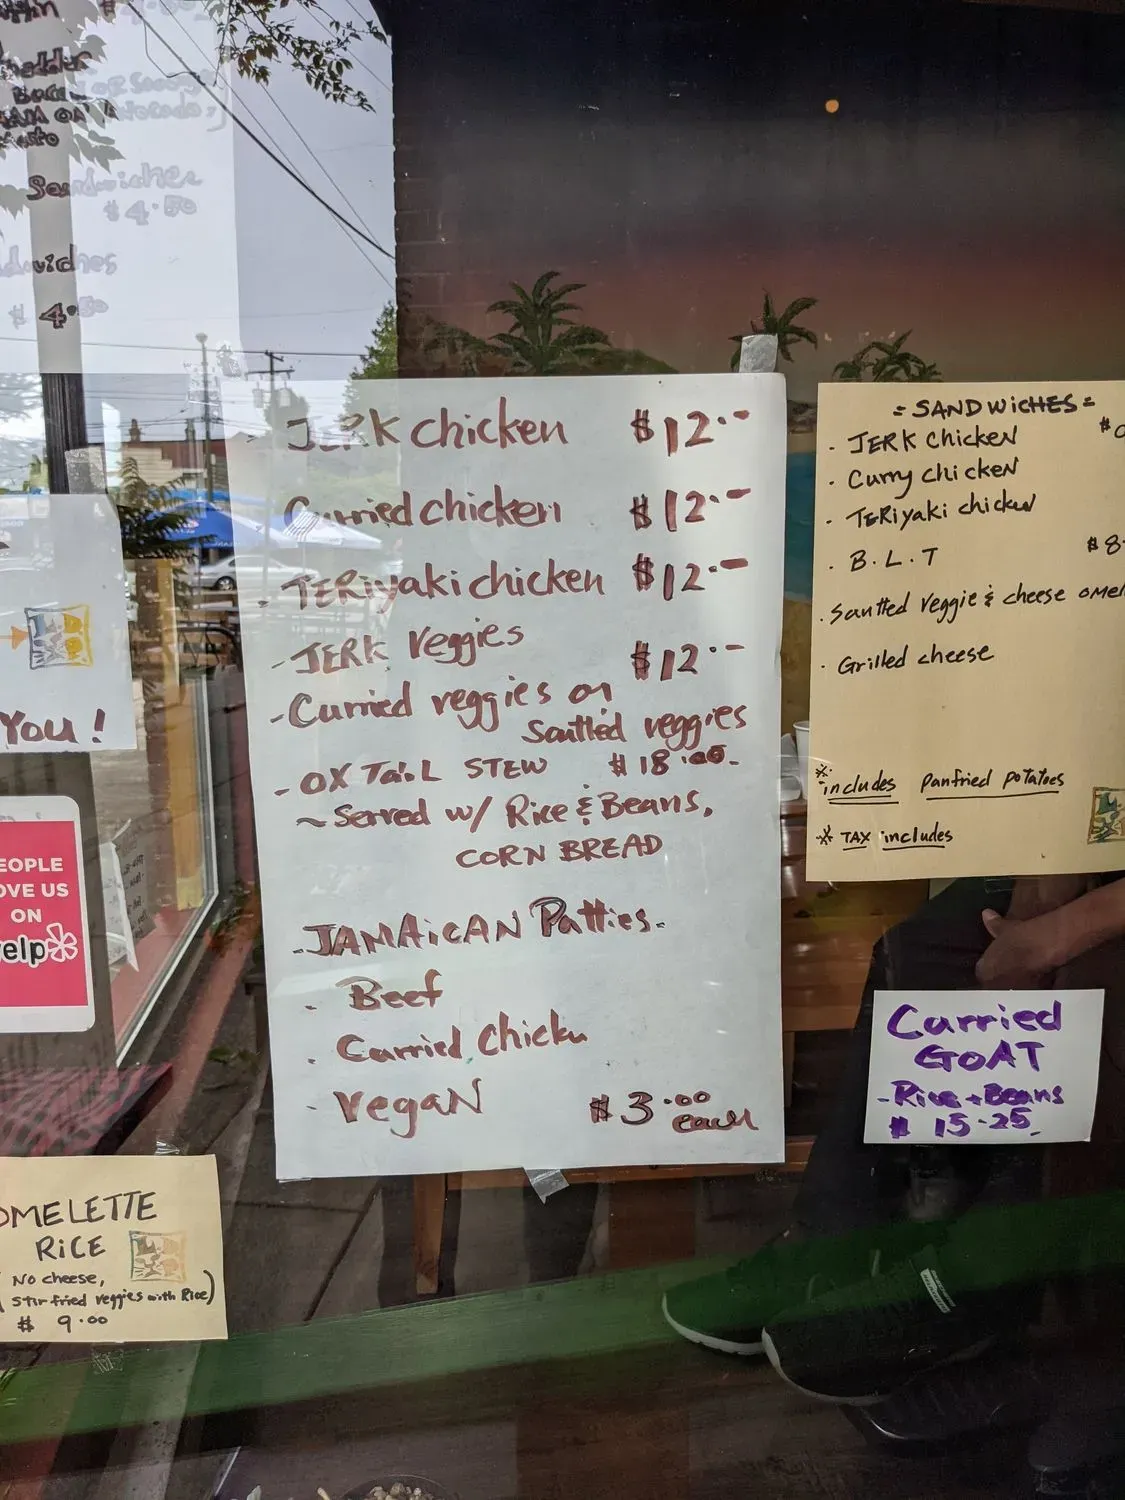 Sandwiches
$4.50
$4.50
YOU!
JERK chicken $12.-
Curried chicken $12.-
- TERiyaki chicken $12.-
- JERK Veggies $12.-
- Curried veggies or
Sautted veggies
- OX TaiL STEW $18.00-
~ Served w/ Rice & Beans,
CORN BREAD
- JAMAiCAN Patties.
- Beef
- Curried Chicken
- VegaN $3.00
each
= SANDWICHES =
- JERK chicken
- Curry chicken
- TERiyaki chicken
- B.L.T $8
- Sautted veggie & cheese
- Grilled cheese
* includes panfried potatoes
* TAX includes
Curried
GOAT
- Rice + Beans
$ 15.25
OVE US
ON
yelp
OMELETTE
RiCE
( No cheese,
stir fried veggies with Rice)
$ 9.00